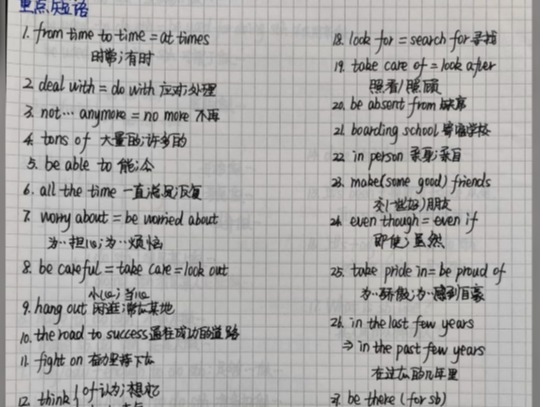 重点短语
1. from time to time = at times
时常;有时
2. deal with = do with 应对;处理
3. not… anymore = no more 不再
4. tons of 大量的;许多的
5. be able to 能;会
6. all the time 一直;总是;反复
7. worry about = be worried about
为…担心;为…烦恼
8. be careful = take care = look out
小心;当心
9. hang out 闲逛;常去某地
10. the road to success 通往成功的道路
11. fight on 奋力坚持下去
12. think of 认为;想忆
18. look for = search for 寻找
19. take care of = look after
照看/照顾
20. be absent from 缺席
21. boarding school 寄宿学校
22. in person 亲身;亲自
23. make (some good) friends
交(一些好)朋友
24. even though = even if
即使;虽然
25. take pride in = be proud of
为…骄傲;为…感到自豪
26. in the last few years
⇒ in the past few years
在过去的几年里
27. be there (for sb)